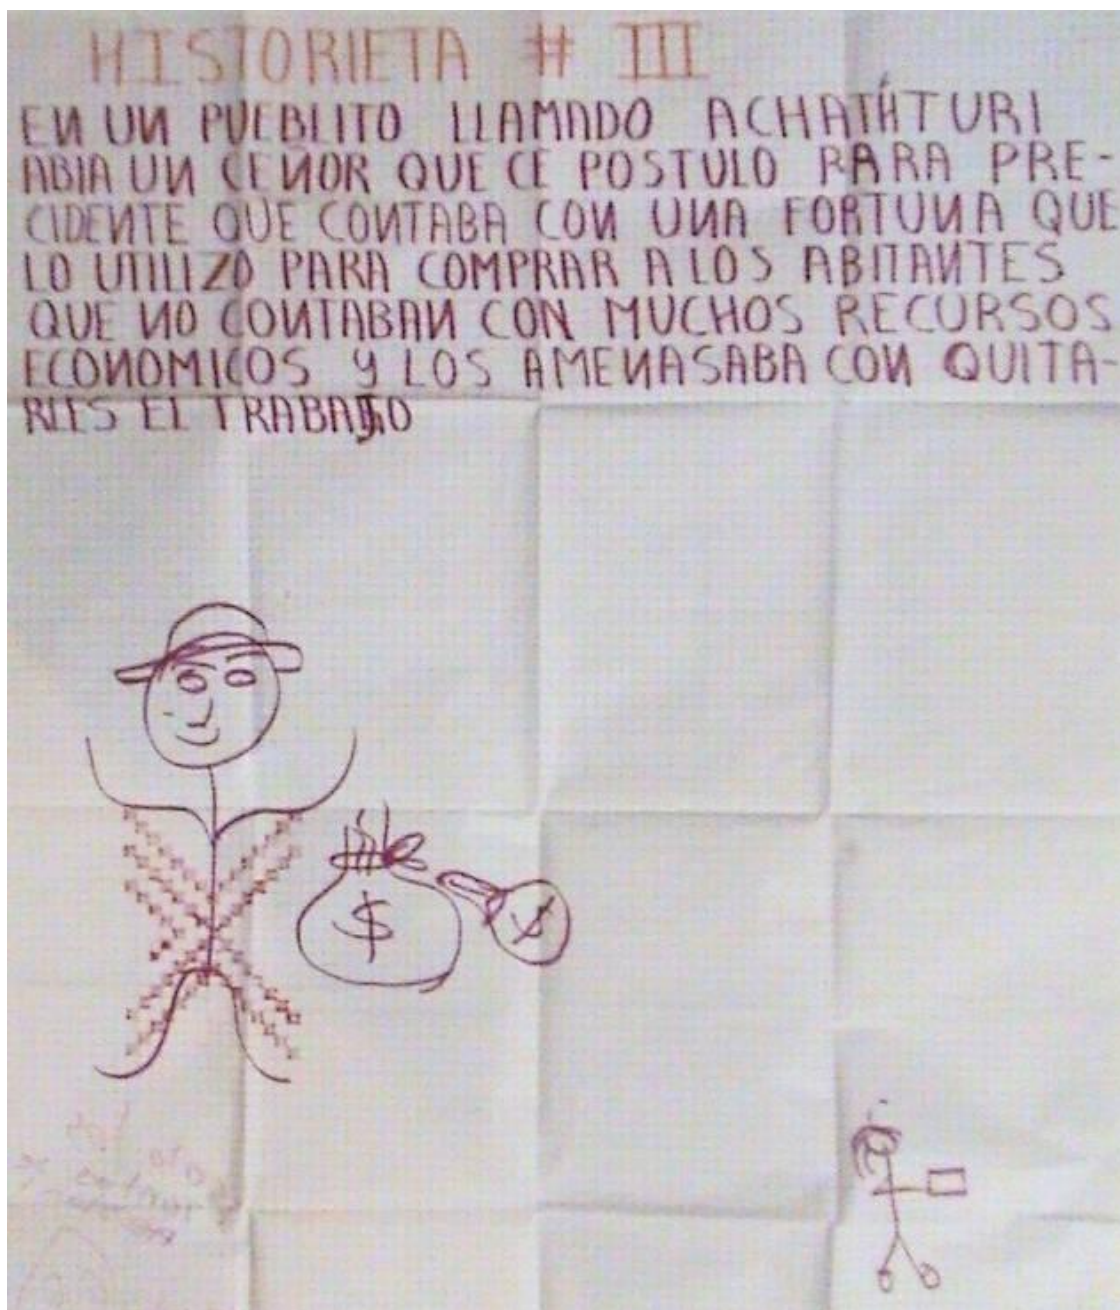 HISTORIETA # III
EN UN PUEBLITO LLAMADO ACHATÁTURI
ABIA UN CEÑOR QUE CE POSTULO PARA PRE-
CIDENTE QUE CONTABA CON UNA FORTUNA QUE
LO UTILIZO PARA COMPRAR A LOS ABITANTES
QUE NO CONTABAN CON MUCHOS RECURSOS
ECONOMICOS Y LOS AMENASABA CON QUITA-
RLES EL TRABAJO
$ $